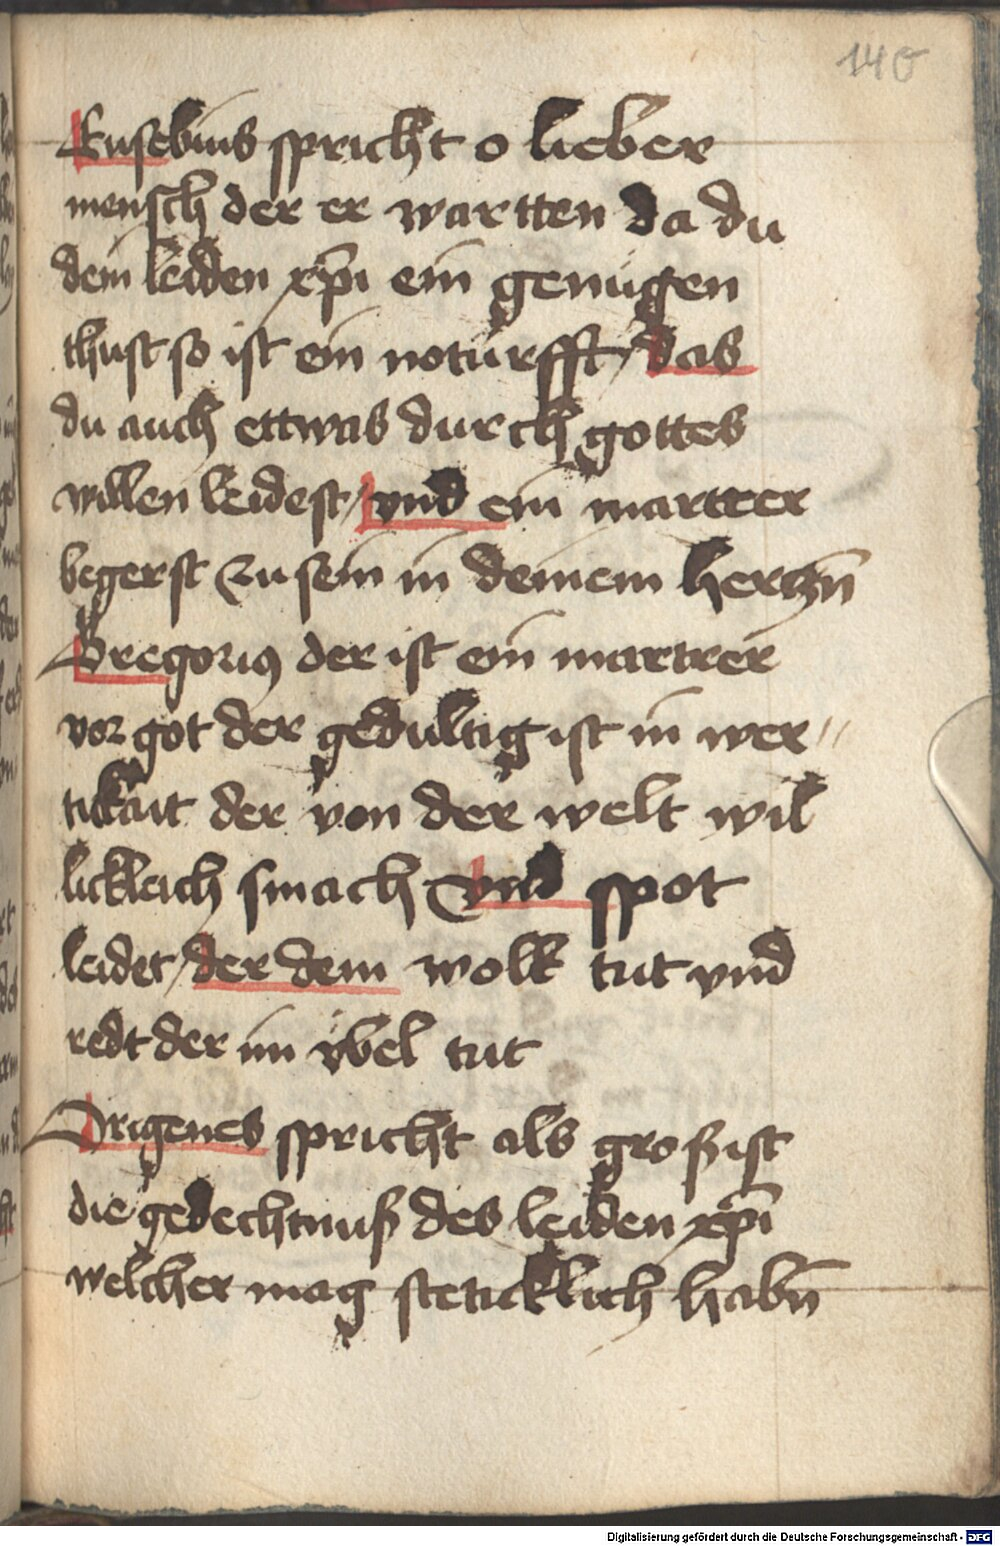 140
Eusebius spricht o lieber
mensch der er wartten da du
dem leiden xp̄i ein genugen
thust so ist ein noturfft / das
du auch ettwas durch gottes
willen leidest / vnd ein martrer
begerst zu sein in deinem herczn̄
Gregorius der ist ein martrer
vor got der gedultig ist in wer〃
tikait der von der welt wil
licklich smach vnd spot
leidet / der dem wolk tut vnd
redt der im v̈bel tut
Origenes spricht als groß ist
die gedechtnuß des leiden xp̄i
welcher mag steticklich habn̄
Digitalisierung gefördert durch die Deutsche Forschungsgemeinschaft - DFG